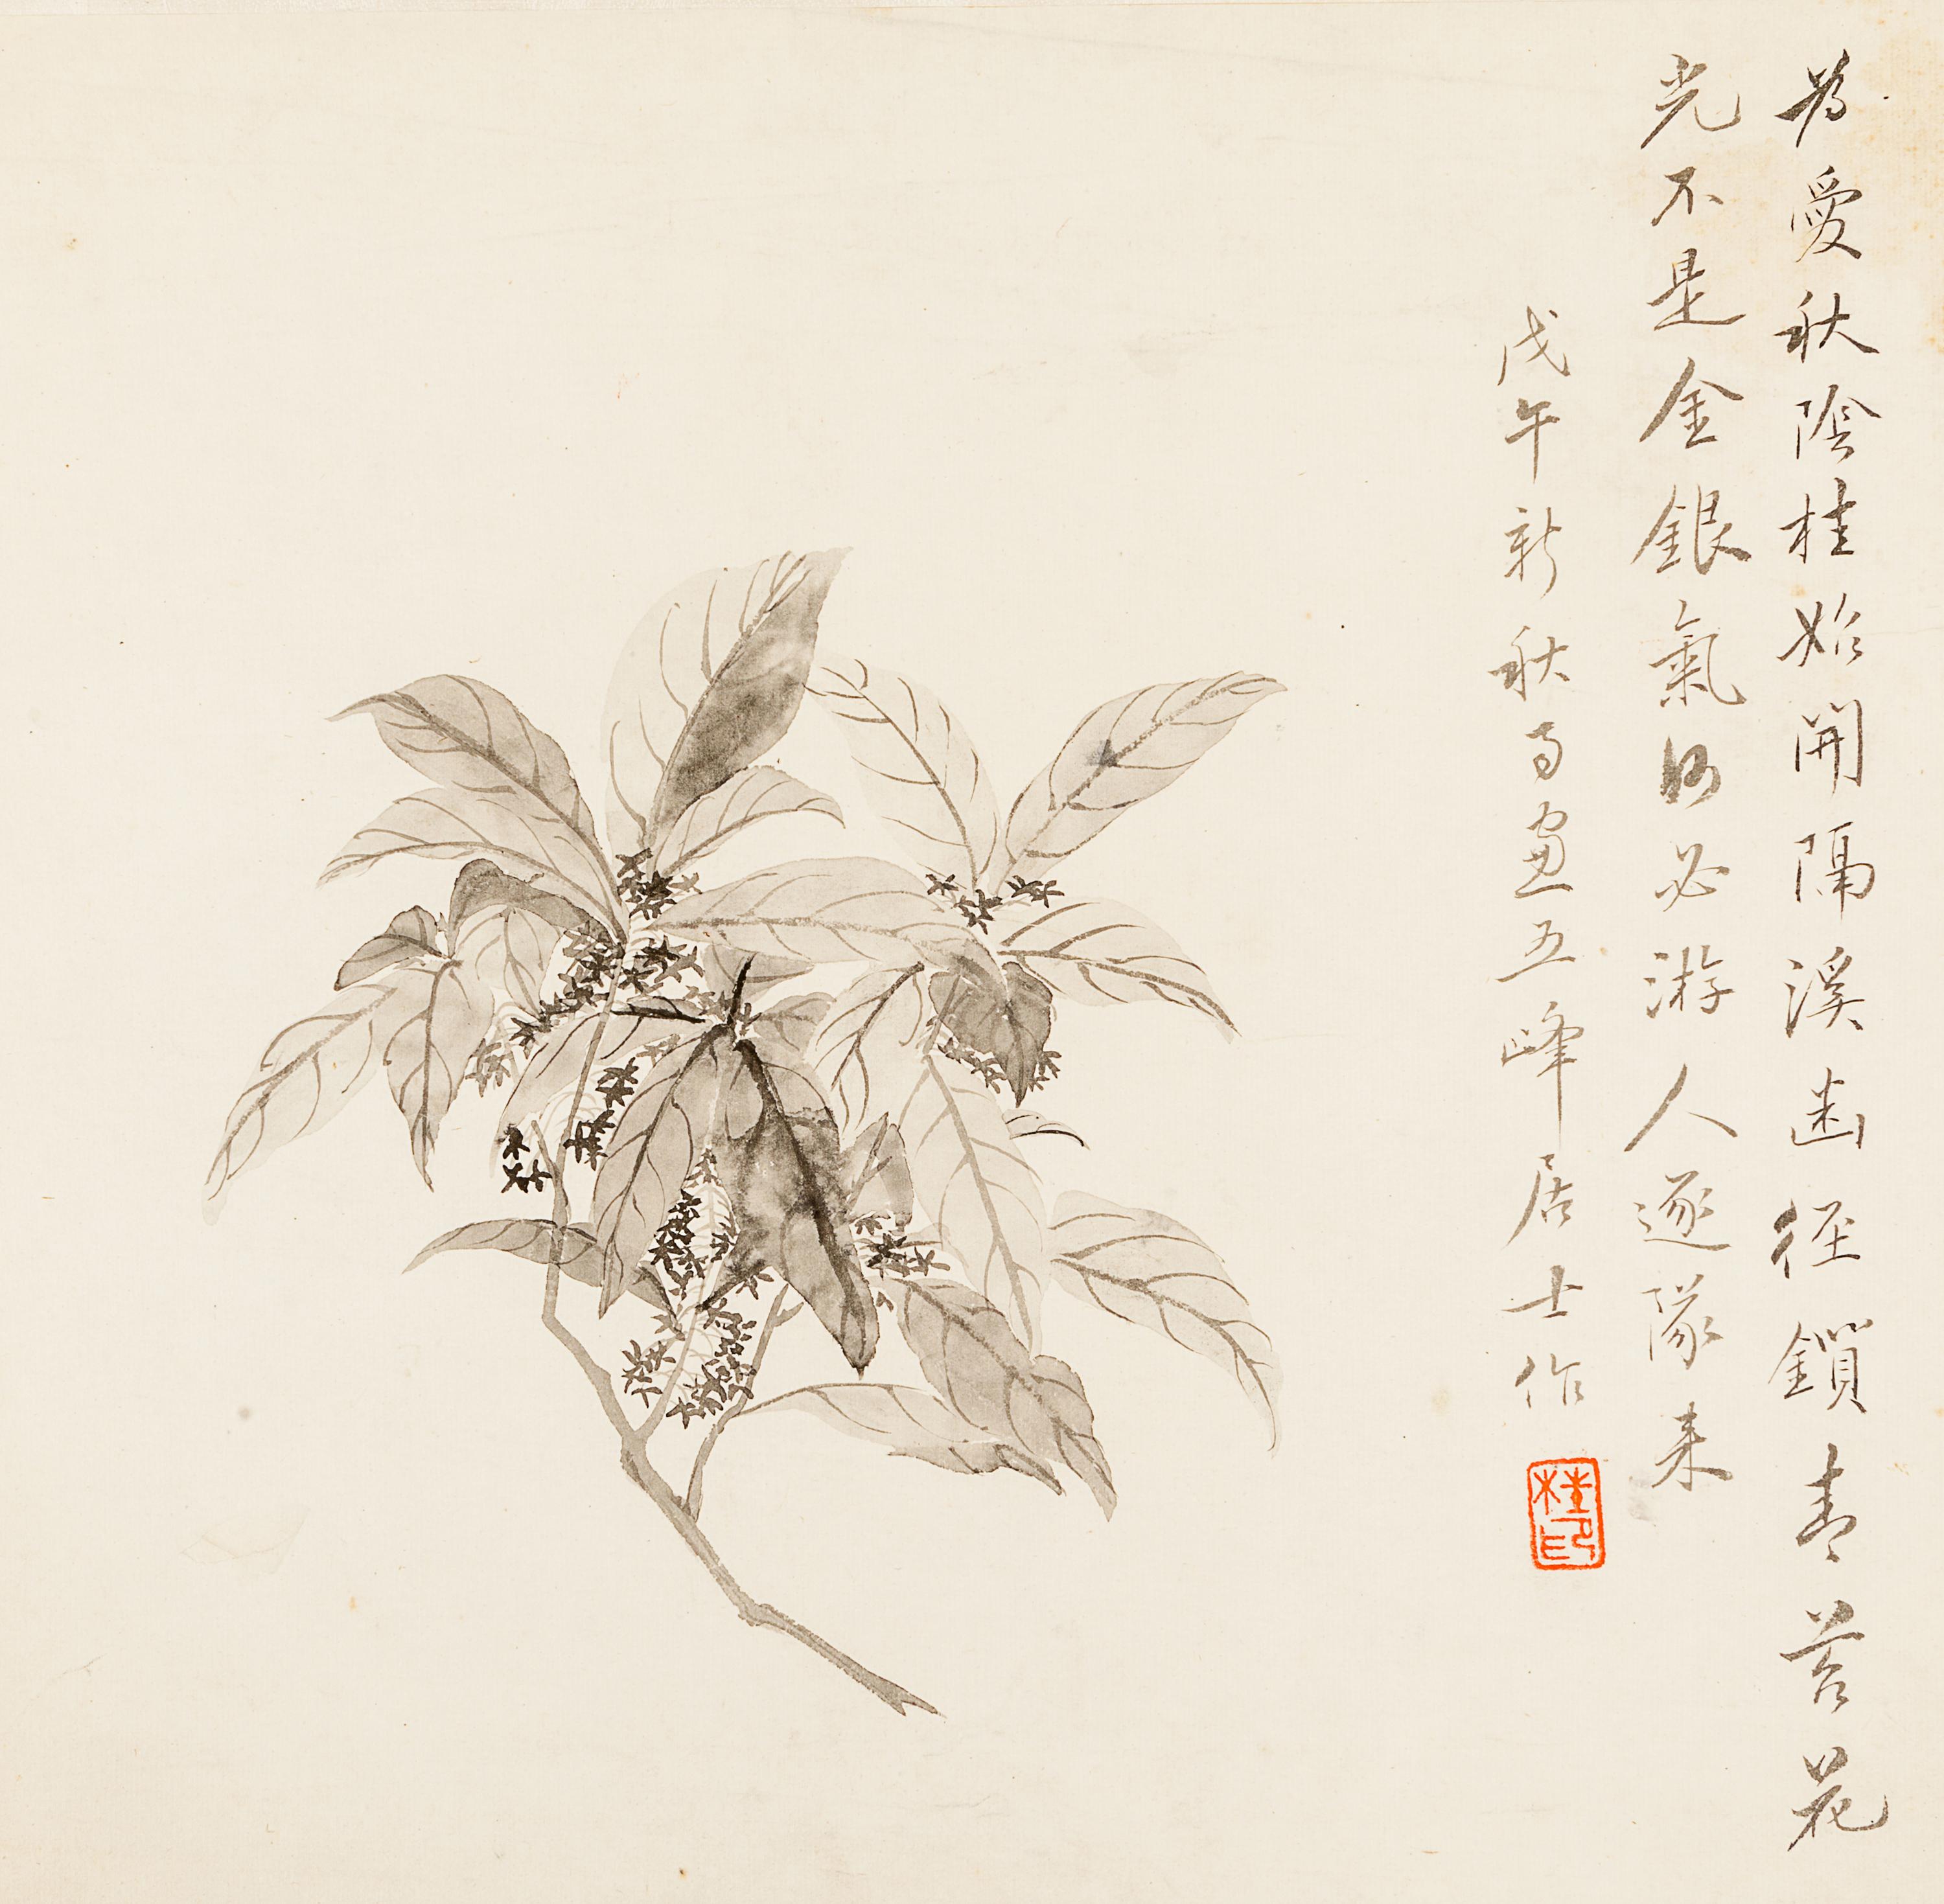 為愛秋陰桂始開隔溪幽徑鎖青苔花
光不是金銀氣必游人逐隊來
戊午新秋畫五峰居士作
桂印